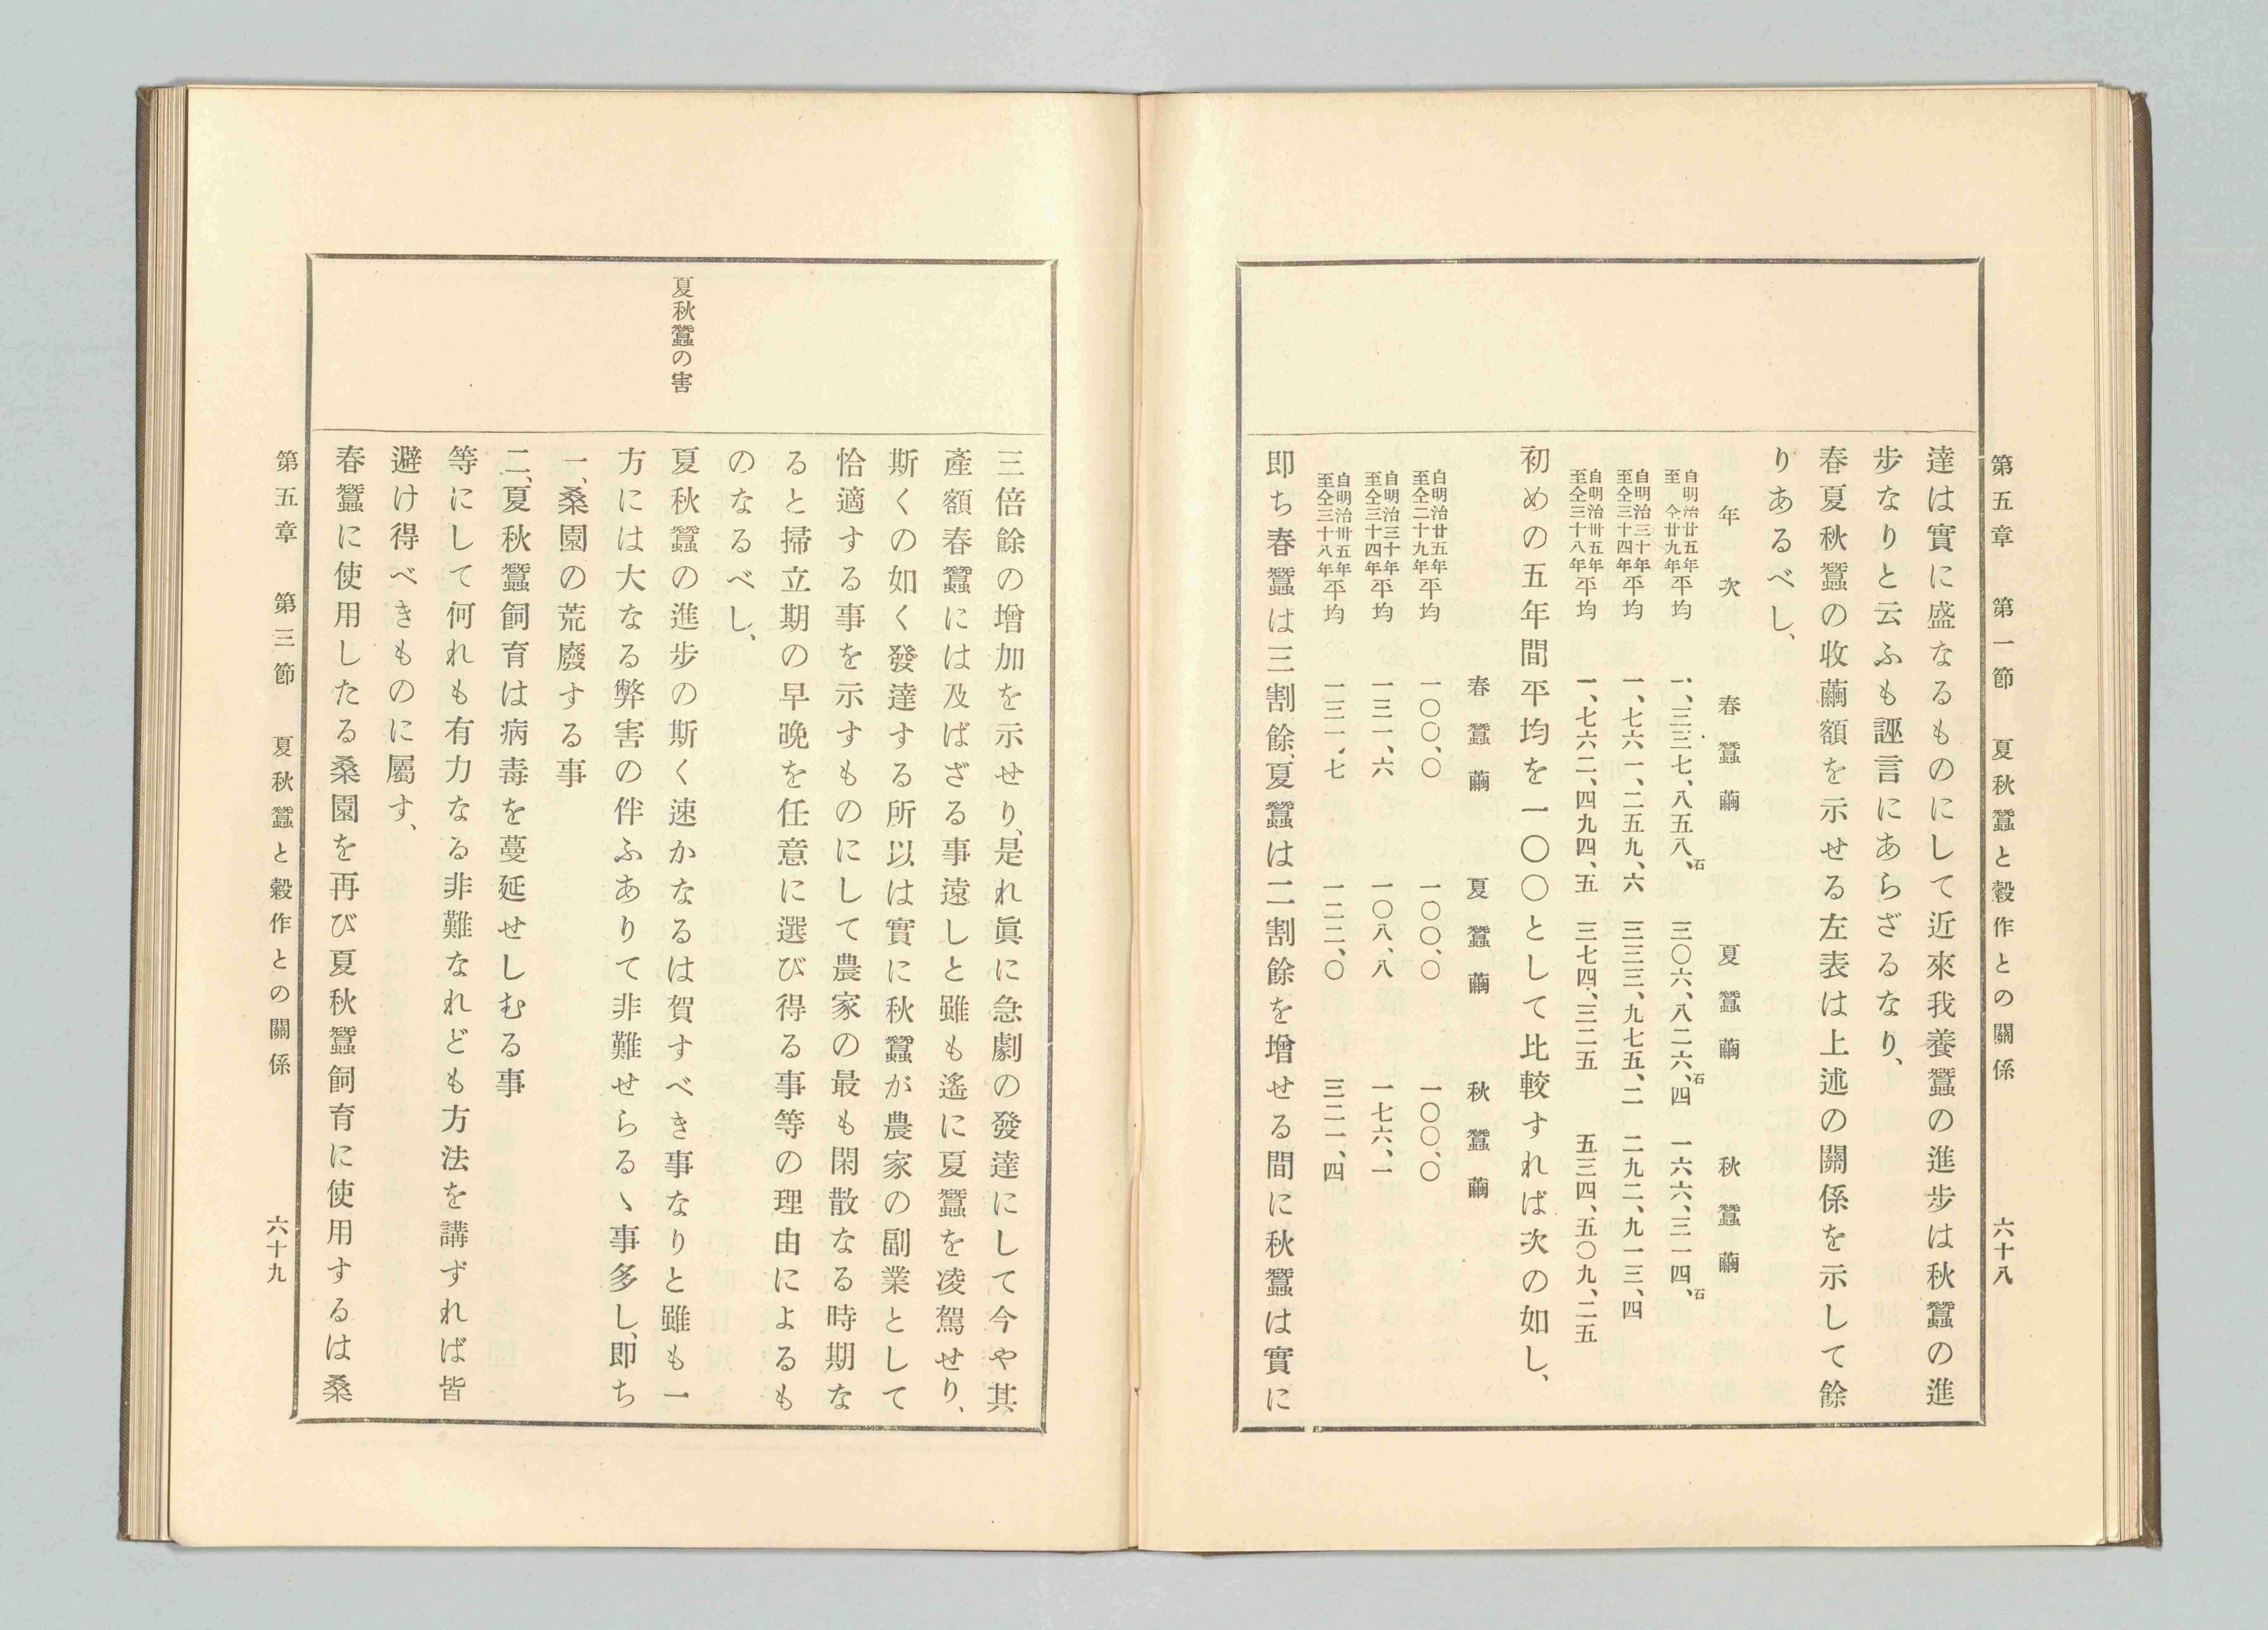 第五章　第一節　夏秋蠶と穀作との關係　六十八
達は實に盛なるものにして近來我養蠶の進步は秋蠶の進
步なりと云ふも誣言にあらざるなり、
春夏秋蠶の收繭額を示せる左表は上述の關係を示して餘
りあるべし、
年次　春蠶繭　夏蠶繭　秋蠶繭
自明治廿五年至仝廿九年平均　一、三三七、八五八、石　三〇六、八二六、石四　一六六、三一四、石
自明治三十年至仝三十四年平均　一、七六一、二五九、六　三三三、九七五、二　二九二、九一三、四
自明治卅五年至仝三十八年平均　一、七六二、四九四、五　三七四、三二五　五三四、五〇九、二五
初めの五年間平均を一〇〇として比較すれば次の如し、
春蠶繭　夏蠶繭　秋蠶繭
自明治廿五年至仝二十九年平均　一〇〇、〇　一〇〇、〇　一〇〇、〇
自明治三十年至仝三十四年平均　一三一、六　一〇八、八　一七六、一
自明治卅五年至仝三十八年平均　一三一、七　一二二、〇　三二一、四
即ち春蠶は三割餘、夏蠶は二割餘を增せる間に秋蠶は實に
三倍餘の增加を示せり、是れ眞に急劇の發達にして今や其
產額春蠶には及ばざる事遠しと雖も遙に夏蠶を凌駕せり、
斯くの如く發達する所以は實に秋蠶が農家の副業として
恰適する事を示すものにして農家の最も閑散なる時期な
ると掃立期の早晩を任意に選び得る事等の理由によるも
のなるべし、
夏秋蠶の害
夏秋蠶の進步の斯く速かなるは賀すべき事なりと雖も一
方には大なる弊害の伴ふありて非難せらるゝ事多し、即ち
一、桑園の荒廢する事
二、夏秋蠶飼育は病毒を蔓延せしむる事
等にして何れも有力なる非難なれども方法を講ずれば皆
避け得べきものに屬す、
春蠶に使用したる桑園を再び夏秋蠶飼育に使用するは桑
第五章　第三節　夏秋蠶と穀作との關係　六十九